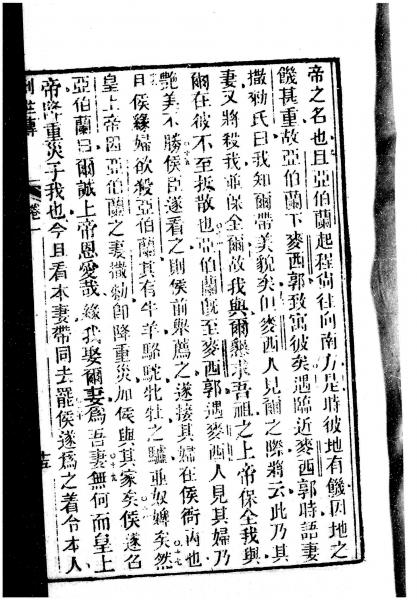 帝之名也且亞伯蘭起程尙往向南方是時彼地有饑因地之
饑甚重故亞伯蘭下麥西郭致寓彼矣遇臨近麥西郭時語妻
撒勑氏曰我知爾帶美貌矣但麥西人見爾之際將云此乃其
妻又將殺我並保全爾故我與爾懇求吾祖之上帝保全我與
爾在彼不至拆散也亞伯蘭旣至麥西郭遇麥西人見其婦乃
艷美不勝侯臣遂看之則侯前舉薦之遂接其婦在侯衙內也
且侯緣婦欲殺亞伯蘭其有牛羊駱駝牝牡之驢並奴婢矣然
皇上帝因亞伯蘭之妻撒勑卽降重災加侯與其家矣侯遂召
亞伯蘭曰爾誠上帝恩愛哉緣我娶爾妻爲吾妻無何而皇上
帝降重災于我也今且看本妻帶同去罷侯遂爲之着令本人
卷一